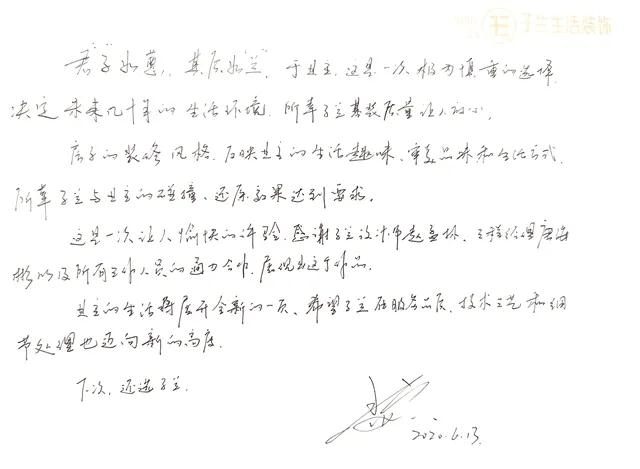 子兰生活装饰
“君子如蕙”，“其质如兰”，于业主，这是一次极为慎重的选择，
决定未来几十年的生活环境。所幸子兰基装质量让人放心。
房子的装修风格，反映业主的生活趣味、审美品味和生活方式，
所幸子兰与业主的碰撞、还原效果达到要求。
这是一次让人愉快的体验，感谢子兰设计师赵 工程经理唐
彬以及所有工作人员的通力合作，展现出这个作品。
业主的生活将展开全新的一页，希望子兰在服务品质、技术工艺和细
节处理也迈向新的高度。
下次，还选子兰。
2020.6.13.